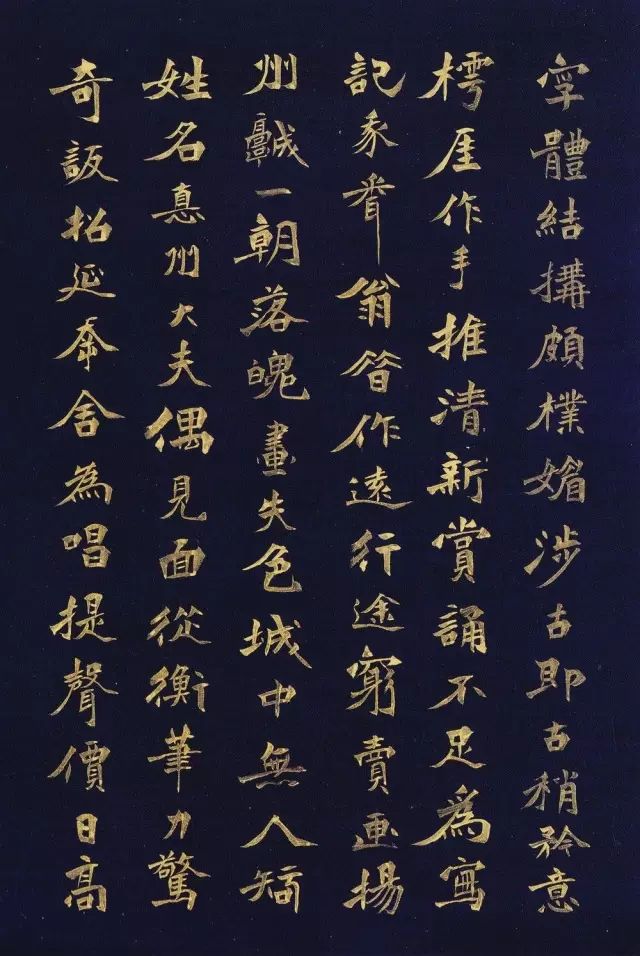 字體結搆頗樸媚涉古即古稍矜意
樗厓作手推清新賞誦不足為寫
記翁昝作遠行途窮賣画揚
州一朝落魄畫失色城中無人知
姓名惪州大夫偶見面從衡筆力驚
奇招延幸舍為唱提聲價日高